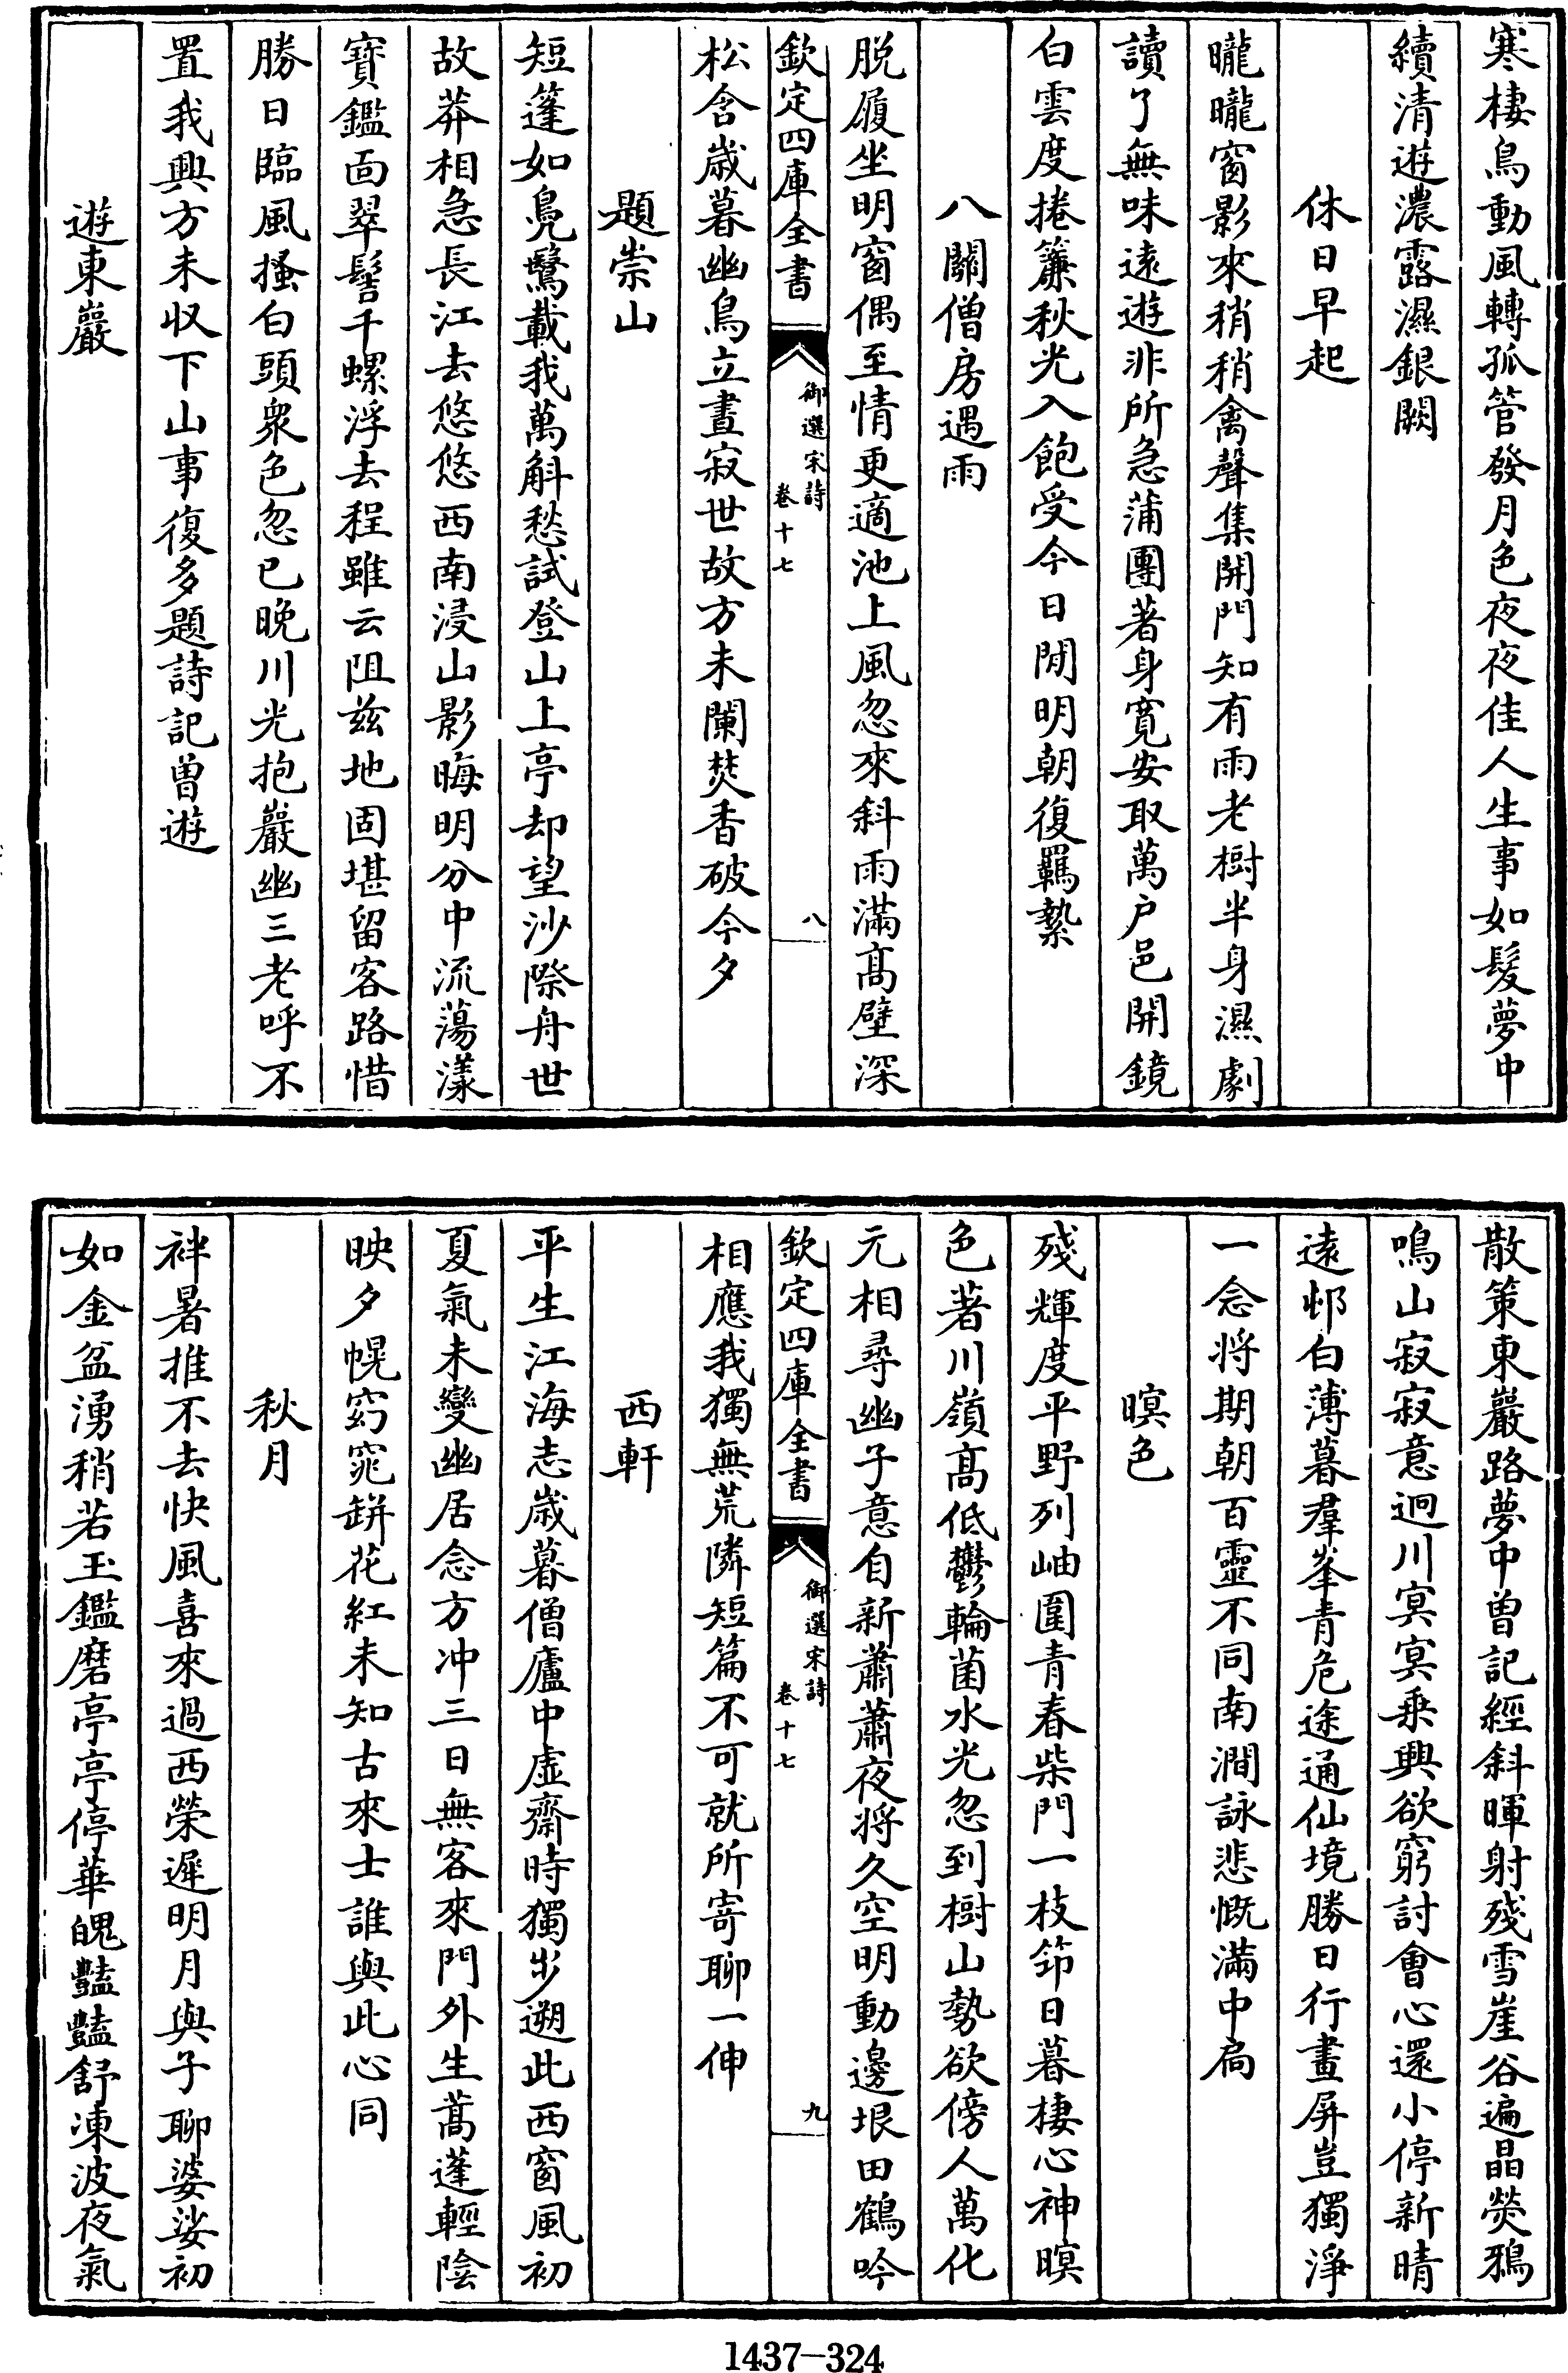 寒棲鳥動風轉孤管發月色夜夜佳人生事如髮夢中
續清遊濃露濕銀闕
休日早起
曨曨窗影來稍稍禽聲集開門知有雨老樹半身濕劇
讀了無味遠遊非所急蒲團著身寛安取萬户邑開鏡
白雲度捲簾秋光入飽受今日閒明朝復羈縶
八關僧房遇雨
脱履坐明窗偶至情更適池上風忽來斜雨滿髙壁深
欽定四庫全書
御選宋詩
卷十七
八
松含歲暮幽鳥立晝寂世故方未闌焚香破今夕
題崇山
短篷如鳬鷖載我萬斛愁試登山上亭却望沙際舟世
故莽相急長江去悠悠西南浸山影晦明分中流蕩漾
寳鑑面翠髻千螺浮去程雖云阻兹地固堪留客路惜
勝日臨風搔白頭衆色忽已晩川光抱巖幽三老呼不
置我興方未収下山事復多題詩記曽遊
遊東巖
散策東巖路夢中曽記經斜暉射殘雪崖谷遍晶熒鴉
鳴山寂寂意迥川冥冥乗興欲窮討會心還小停新晴
逺邨白薄暮羣峯青危途通仙境勝日行畫屏豈獨淨
一念將期朝百靈不同南澗詠悲慨滿中扃
暝色
殘輝度平野列岫圍青春柴門一枝笻日暮棲心神暝
色著川嶺髙低鬱輪菌水光忽到樹山勢欲傍人萬化
元相尋幽子意自新蕭蕭夜將久空明動邊垠田鶴吟
欽定四庫全書
御選宋詩
卷十七
九
相應我獨無荒隣短篇不可就所寄聊一伸
西軒
平生江海志歲暮僧廬中虚齋時獨步遡此西窗風初
夏氣未變幽居念方冲三日無客來門外生蒿蓬輕陰
映夕幌窈窕缾花紅未知古來士誰與此心同
秋月
袢暑推不去快風喜來過西榮遲明月與子聊婆娑初
如金盆湧稍若玉鑑磨亭亭停華魄豔豔舒凍波夜氣
1437-324